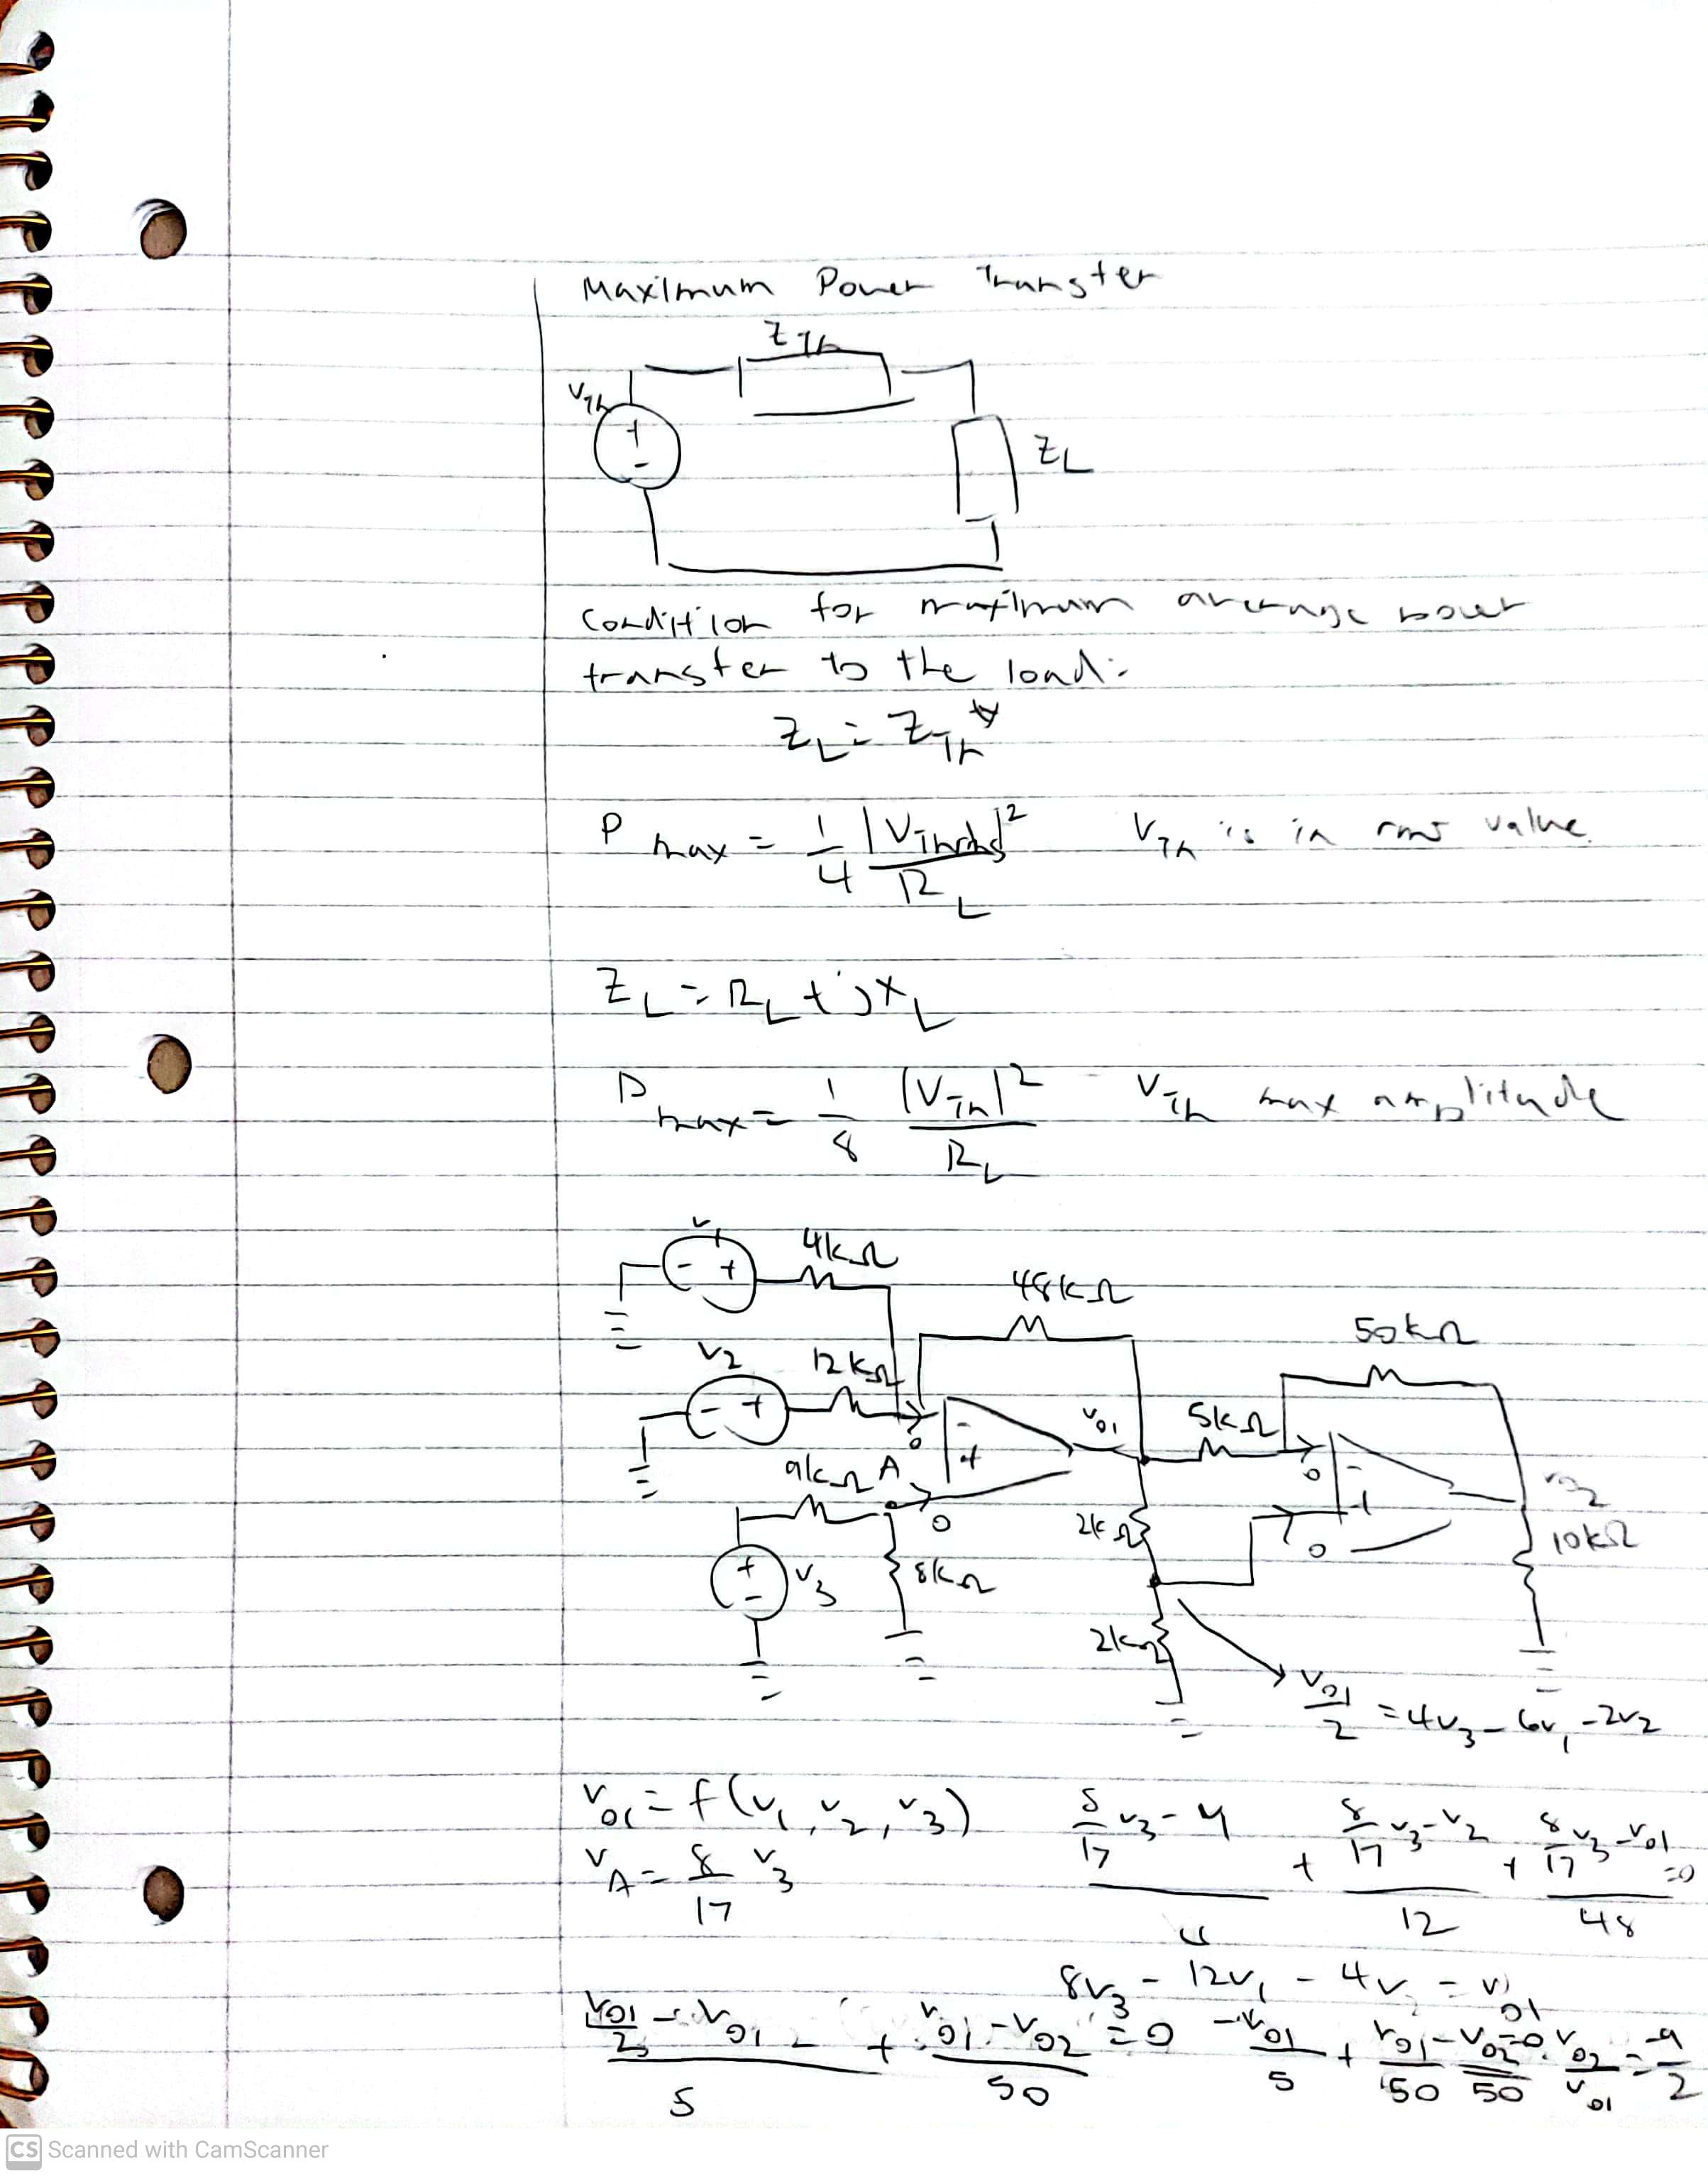 Maximum Power Transfer
Z Th
V Th
+
-
Z L
Condition for maximum average power
transfer to the load:
Z L = Z Th *
P max = 1/4 |V Th rms|² / R L    V Th is in rms value.
Z L = R L + j X L
P max = 1/8 |V Th|² / R L    V Th max amplitude
V1
- +
4kΩ
48kΩ
50kΩ
V2
- +
12kΩ
0
-
+
V01
5kΩ
0
-
+
V02
9kΩ A
0
+
-
V3
8kΩ
2kΩ
0
10kΩ
2kΩ
V01/2 = 4V3 - 6V1 - 2V2
V01 = f(V1, V2, V3)
VA = 8/17 V3
(8/17 V3 - V1)/4 + (8/17 V3 - V2)/12 + (8/17 V3 - V01)/48 = 0
8V3 - 12V1 - 4V2 = V01
-V01/5 + V01/50 - V02/50 = 0    V02/V01 = -9/2
CS Scanned with CamScanner